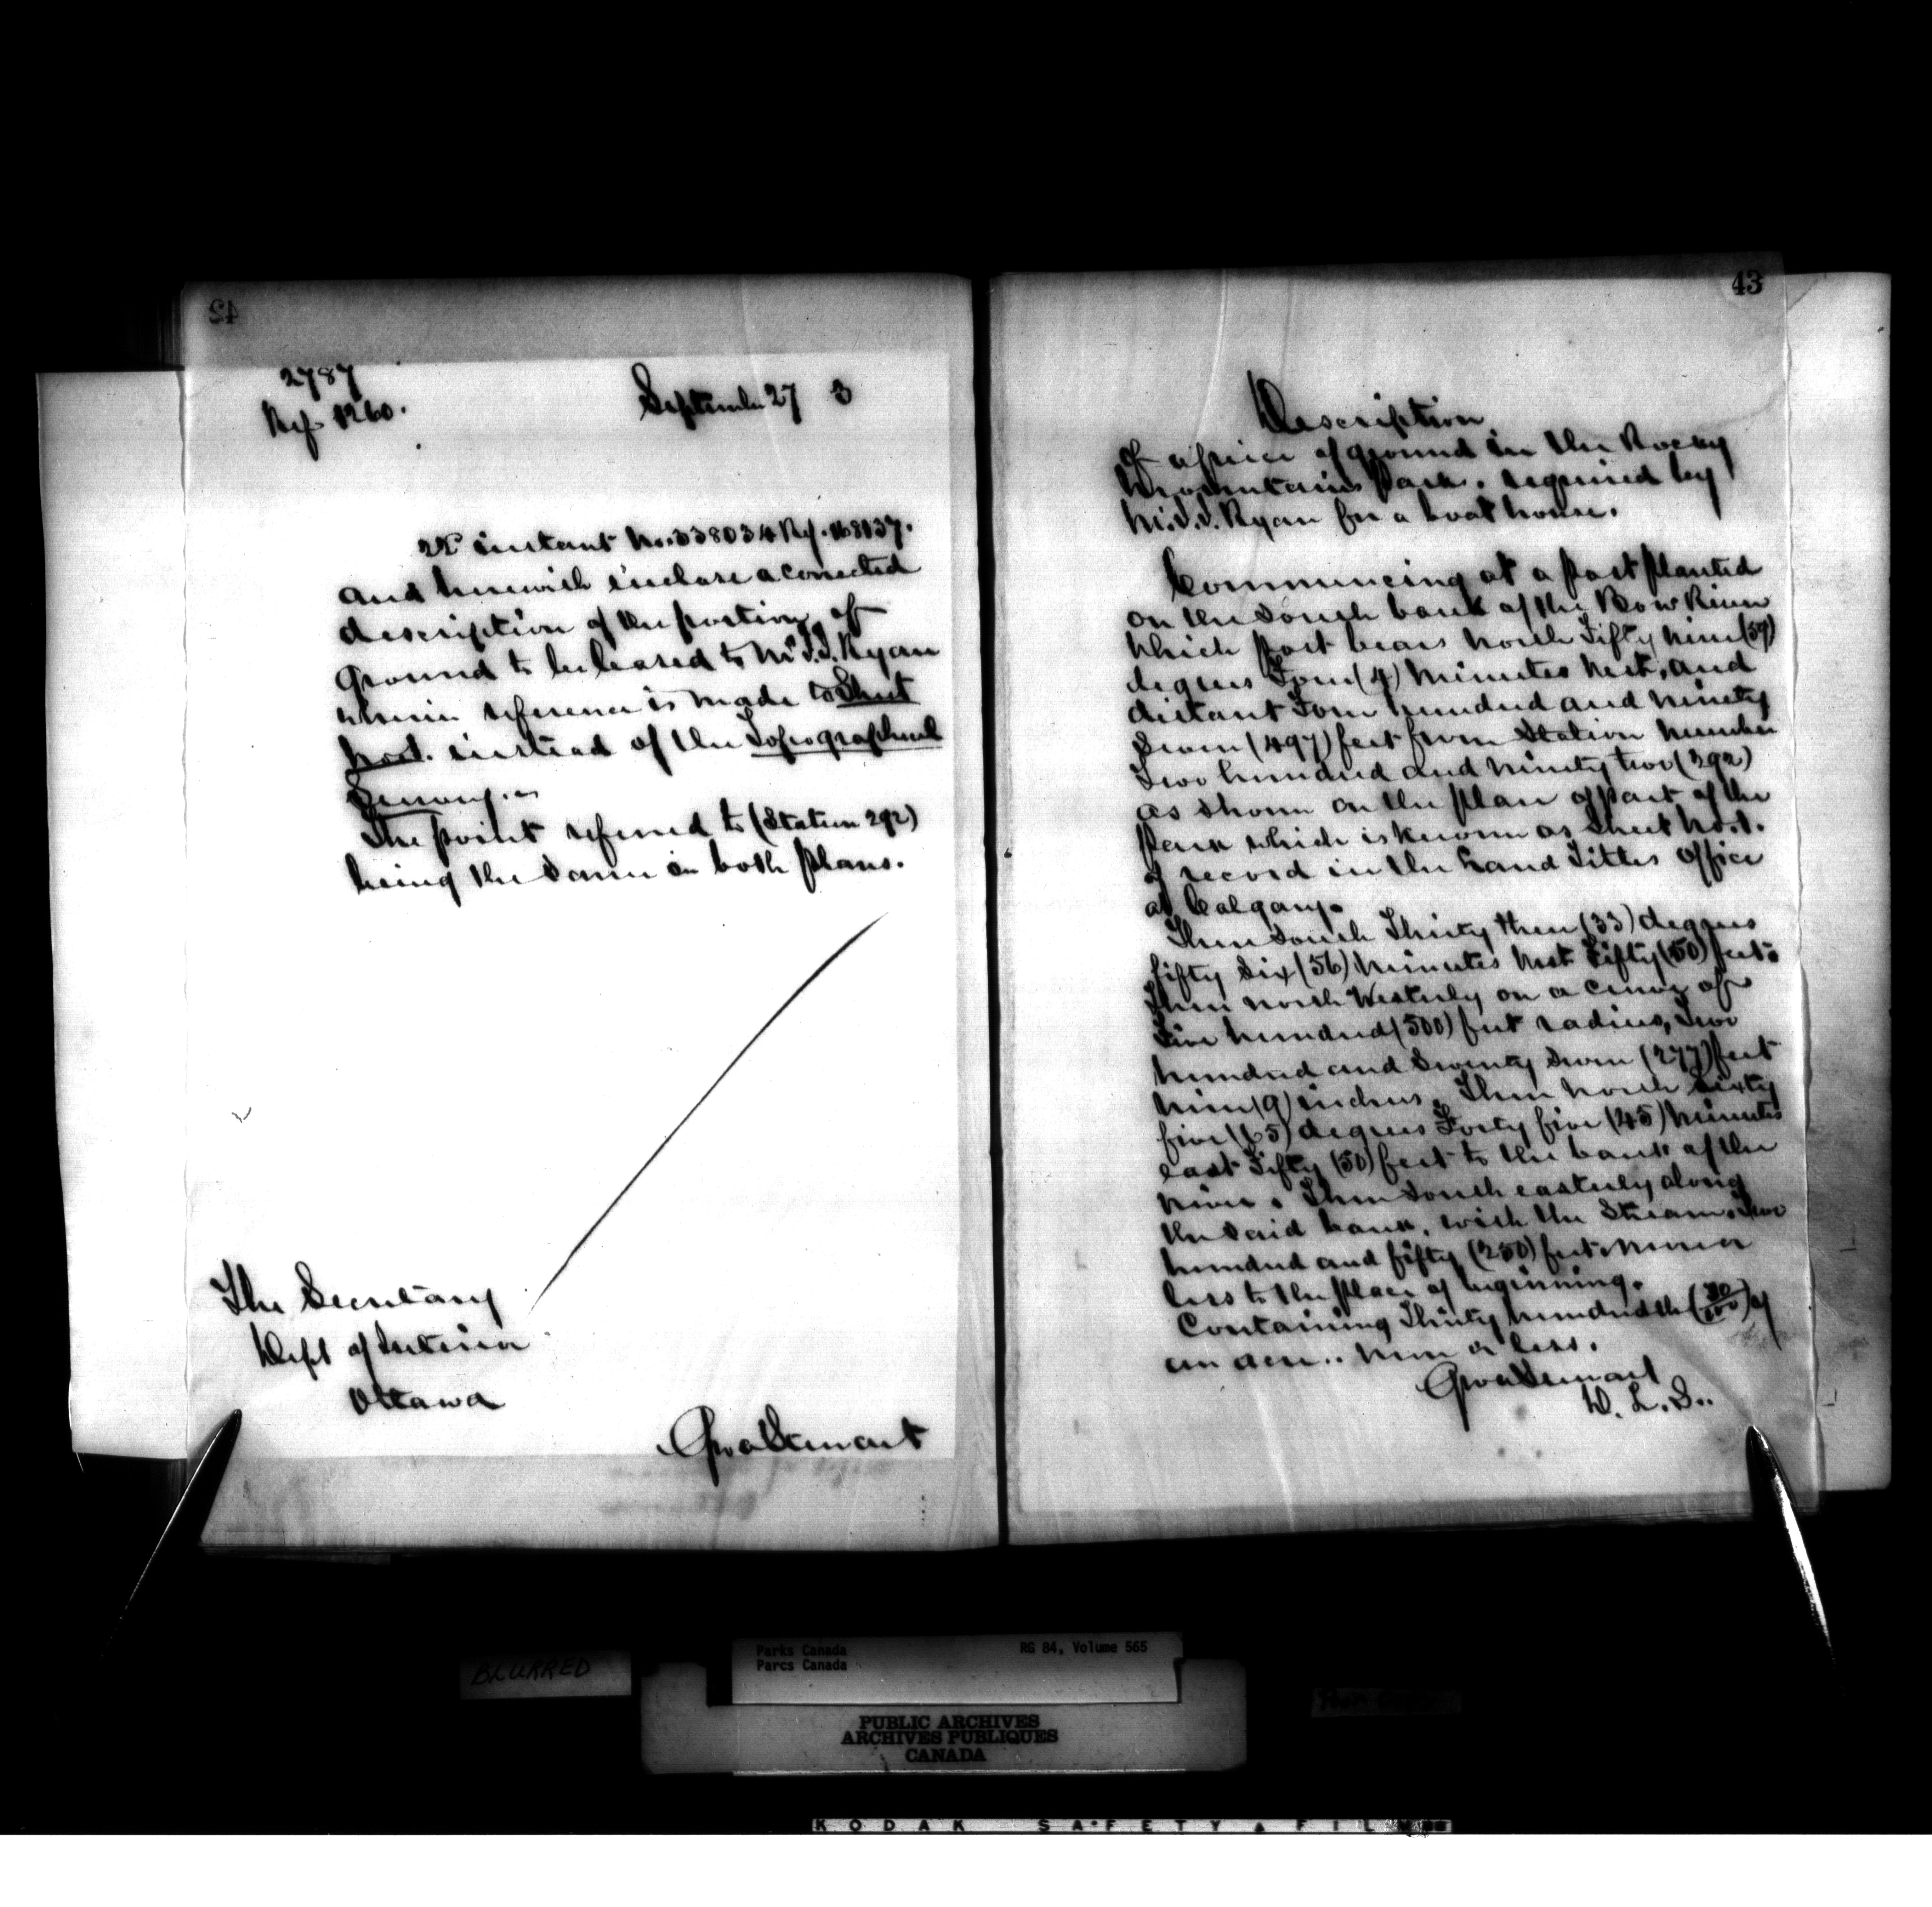 42
2787
Ref 1260.
September 27 3
22d instant No. 338034 Ref. 168137.
and herewith inclose a corrected
description of the portion of
ground to be leased to Mr J.J. Ryan
wherein reference is made to Sheet
No 1. instead of the Topographical
Survey.
The point referred to (Station 292)
being the same in both plans.
The Secretary
Dept of Interior
Ottawa
Geo A Stewart
43
Description
of a piece of ground in the Rocky
Mountains Park, required by
Mr. J.J. Ryan for a boat house.
Commencing at a post planted
on the South bank of the Bow River
which post bears north Fifty nine (59)
degrees Four (4) minutes West, and
distant Four hundred and ninety
Seven (497) feet from Station number
Two hundred and ninety two (292)
as shown on the plan of part of the
Park which is known as Sheet No. 1.
of record in the Land Titles office
at Calgary.
Then South Thirty three (33) degrees
fifty Six (56) minutes West Fifty (50) feet.
Then north Westerly on a curve of
Five hundred (500) feet radius, Two
hundred and Seventy Seven (277) feet
nine (9) inches. Then North Sixty
five (65) degrees Forty five (45) minutes
east Fifty (50) feet to the bank of the
river. Then South easterly along
the said bank, with the Stream, Two
hundred and fifty (250) feet more or
less to the place of beginning.
Containing Thirty hundredth (30/100) of
an acre.. more or less.
Geo A Stewart
D. L. S..
BLURRED
Parks Canada
Parcs Canada
RG 84, Volume 565
PUBLIC ARCHIVES
ARCHIVES PUBLIQUES
CANADA
KODAK SAFETY FILM